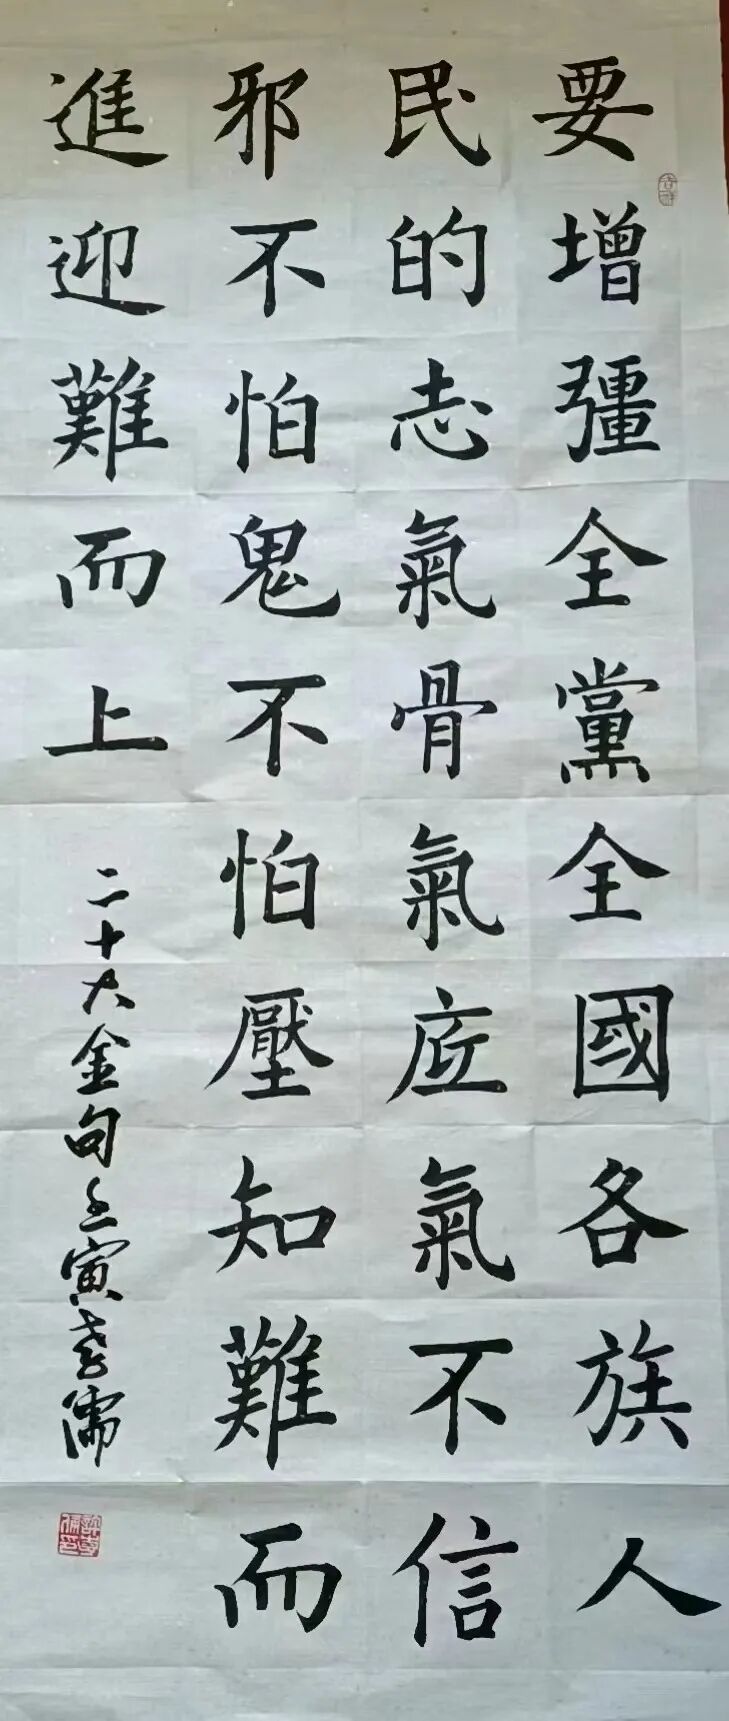 要增彊全黨全國各族人
民的志氣骨氣底氣不信
邪不怕鬼不怕壓知難而
進迎難而上
二十大金句壬寅儒